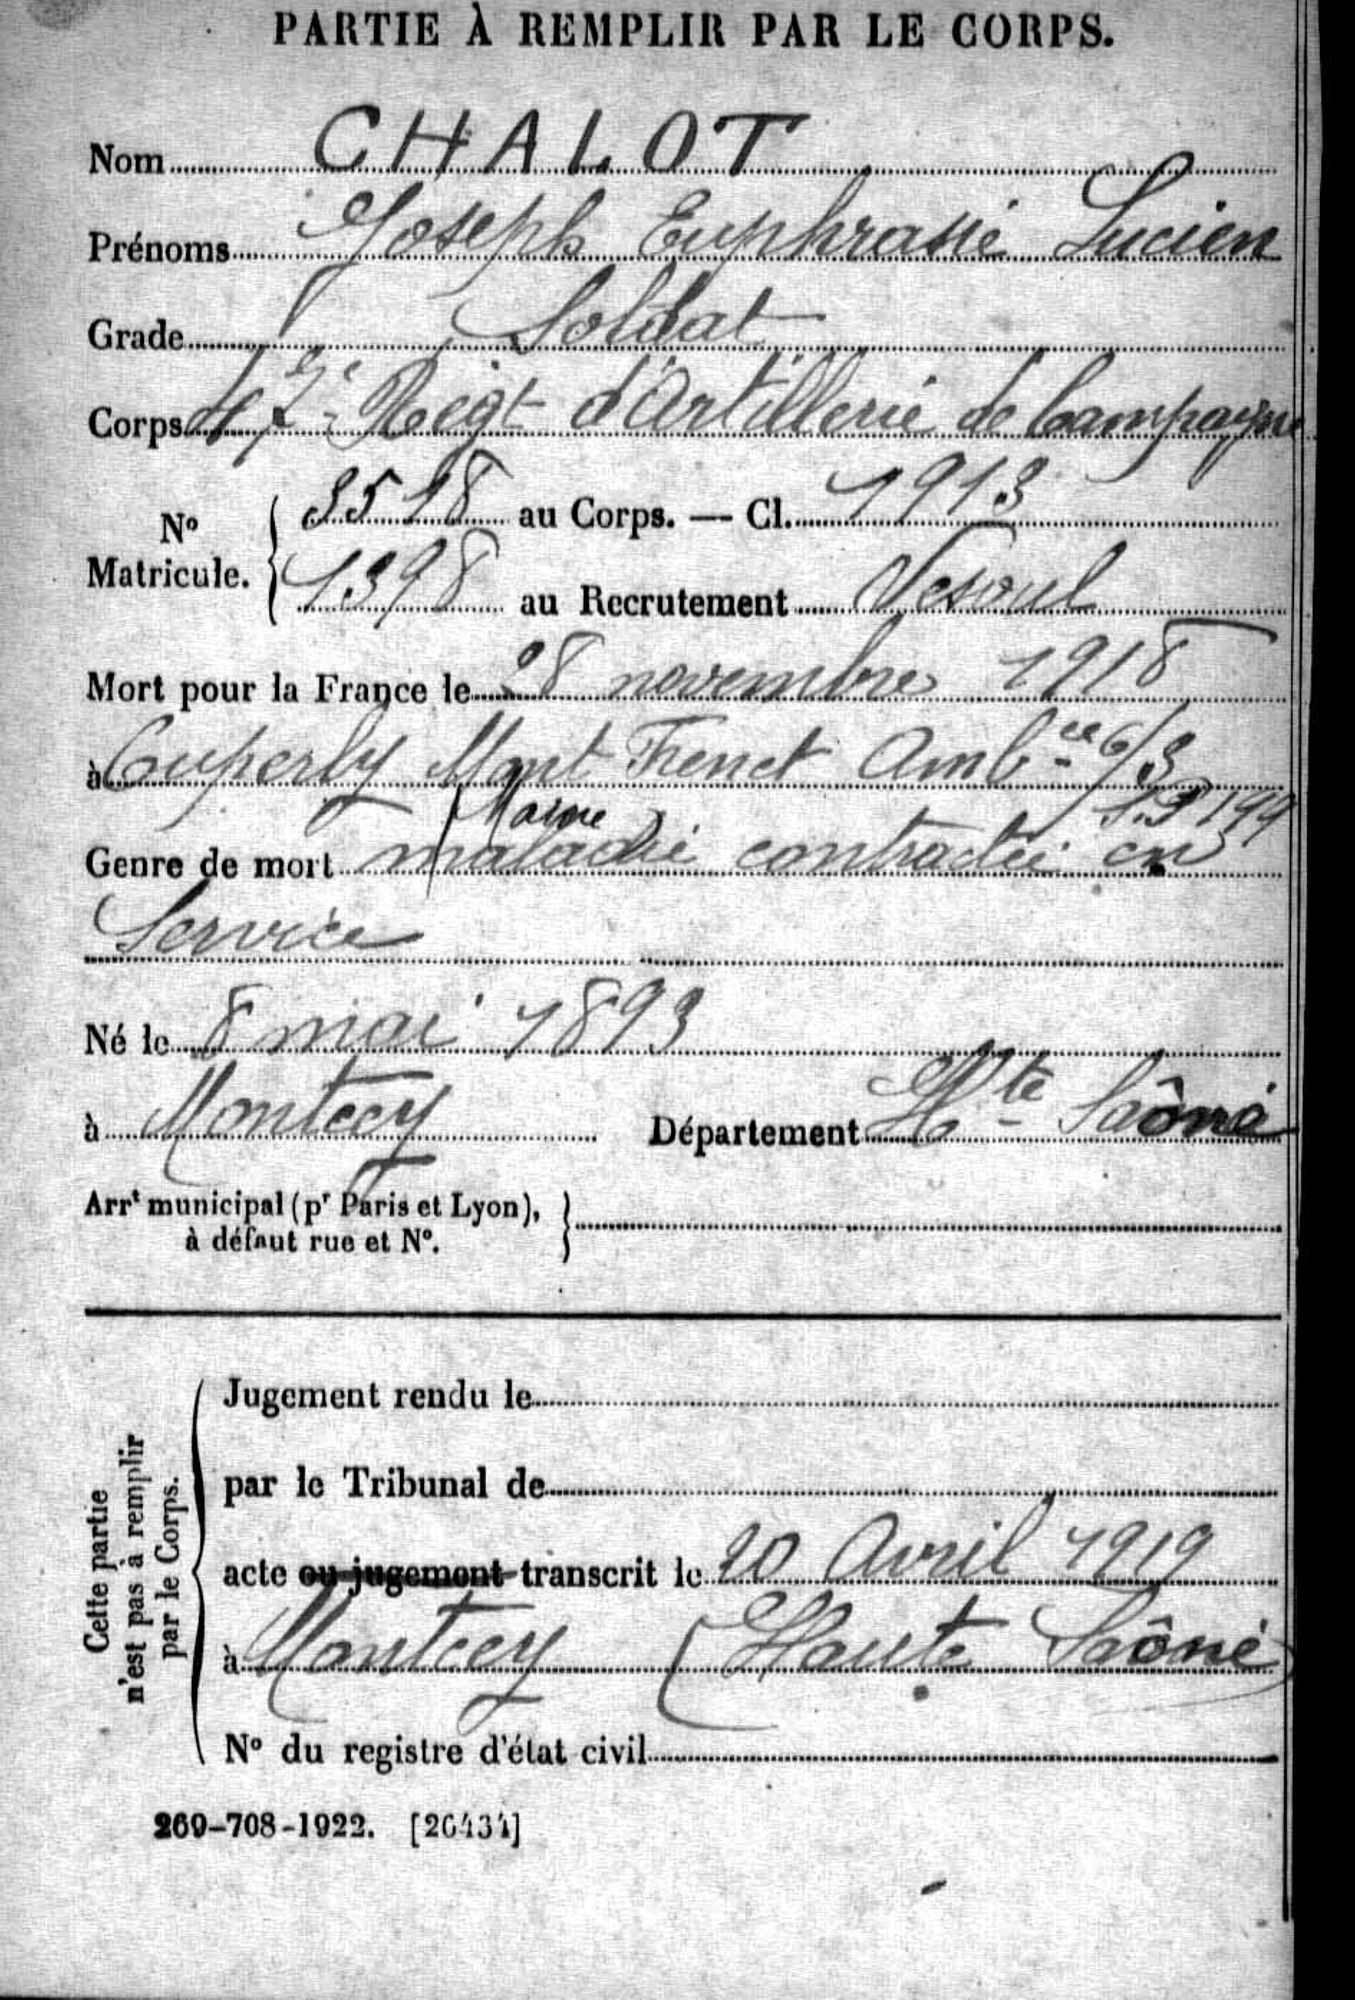 PARTIE À REMPLIR PAR LE CORPS.
Nom CHALOT
Prénoms Joseph Euphrasie Lucien
Grade Soldat
Corps 47e Régt d'Artillerie de Campagne
No Matricule. 3518 au Corps. — Cl. 1913
1398 au Recrutement Vesoul
Mort pour la France le 28 novembre 1918
à Cuperly Mont Frenet Ambce 6/3
Marne
Genre de mort maladie contractée en
Service
Né le 8 mai 1893
à Montcey Département Hte Saône
Arrt municipal (pr Paris et Lyon),
à défaut rue et No.
Cette partie
n'est pas à remplir
par le Corps.
Jugement rendu le
par le Tribunal de
acte ou jugement transcrit le 20 Avril 1919
à Montcey (Haute Saône)
No du registre d'état civil
269-708-1922. [26434]